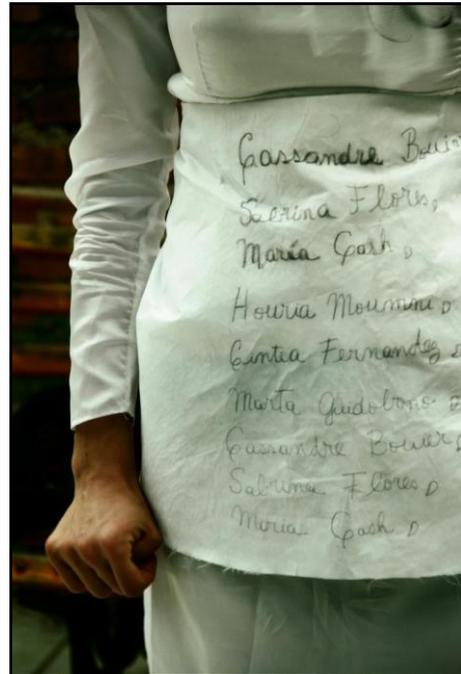 Cassandre Bouvier
Sabrina Flores,
María Cash,
Houria Moumni,
Cintia Fernandez,
Marta Guidobono,
Cassandre Bouvier,
Sabrina Flores,
Maria Cash,